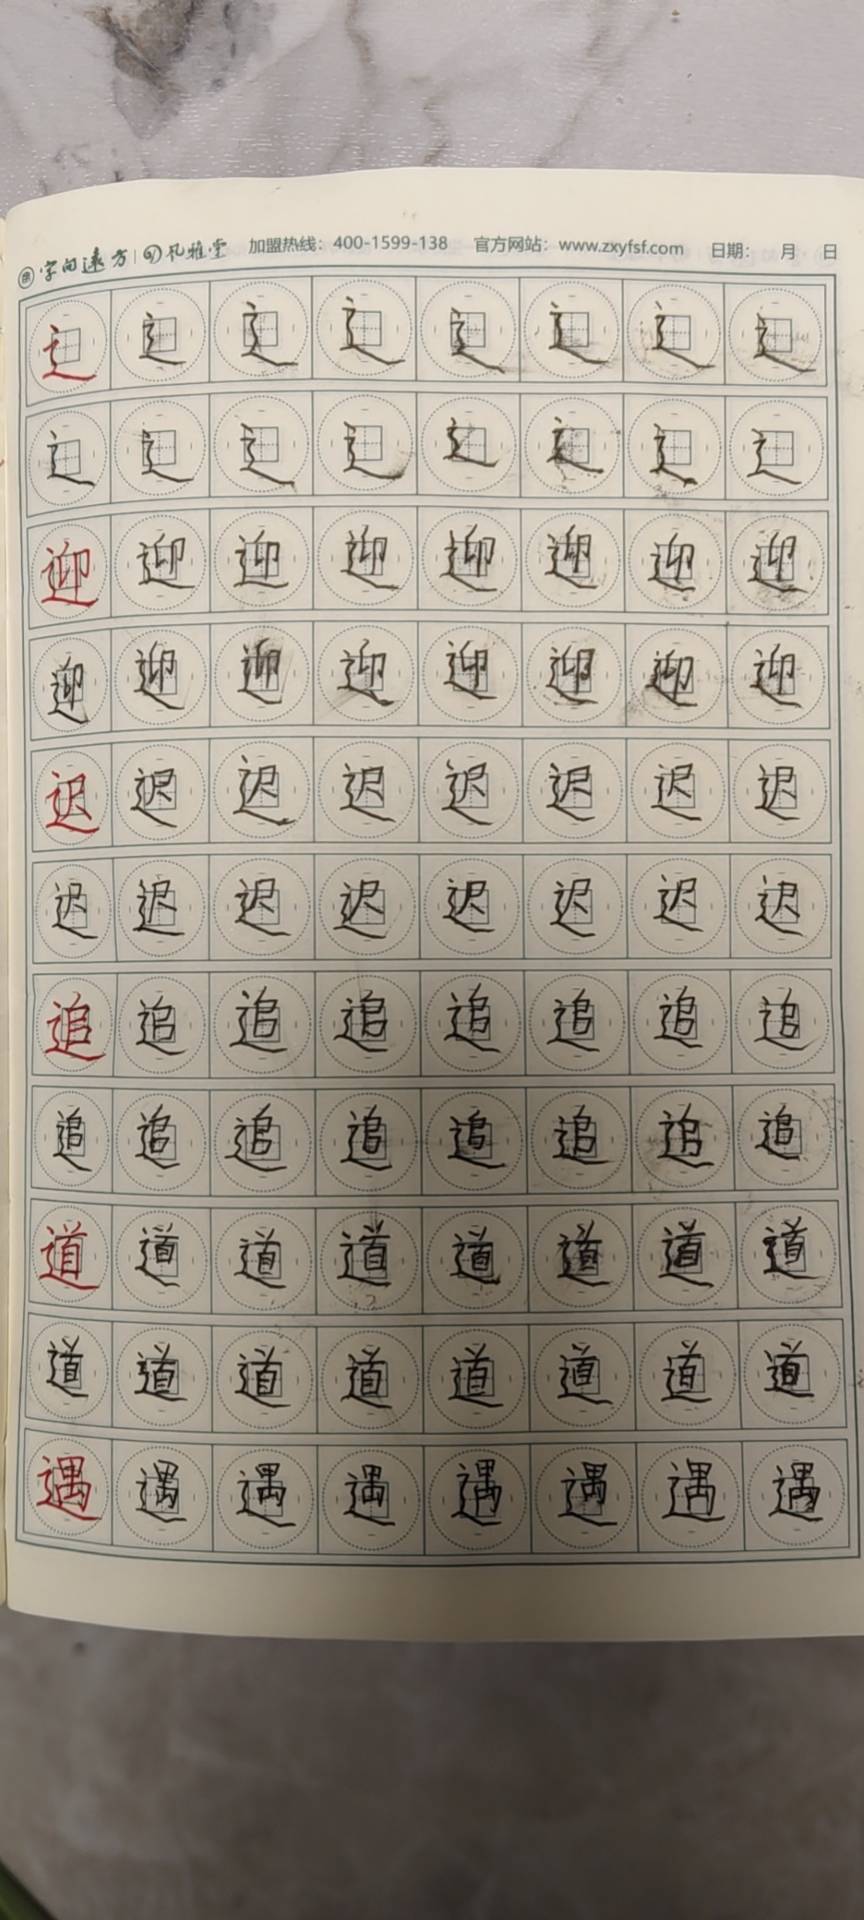 字向远方 孔雅堂 加盟热线：400-1599-138 官方网站：www.zxyfsf.com 日期： 月 日
辶 辶 辶 辶 辶 辶 辶 辶
辶 辶 辶 辶 辶 辶 辶 辶
迎 迎 迎 迎 迎 迎 迎 迎
迎 迎 迎 迎 迎 迎 迎 迎
迟 迟 迟 迟 迟 迟 迟 迟
迟 迟 迟 迟 迟 迟 迟 迟
追 追 追 追 追 追 追 追
追 追 追 追 追 追 追 追
道 道 道 道 道 道 道 道
道 道 道 道 道 道 道 道
遇 遇 遇 遇 遇 遇 遇 遇